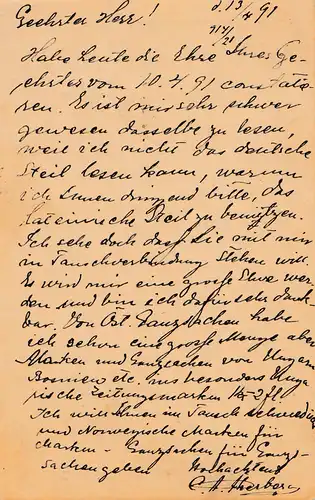 Geehrter Herr!
d. 13/4 91
Habe heute die Ehre Ihres Ge-
ehrter vom 10.4.91 constatie
ren. Es ist mir sehr schwer
gewesen dasselbe zu lesen,
weil ich nicht das deutsche
Steil lesen kann, warum
ich Ihnen dringend bitte, das
lateinische Steil zu benützen.
Ich sehe doch dass Sie mit mir
in Tauschverbindung stehen will.
Es wird mir eine große Ehre wer
den und bin ich dafür sehr dank-
bar. Von Öst. Ganzsachen habe
ich schon eine große Menge aber
Marken und Ganzsachen von Ungarn
Bosnien etc. besonders Unga
rische Zeitungsmarken
Ich will Ihnen im Tausch schwedisch
und Norwegische Marken für
Marken – Ganzsachen für Ganz-
sachen geben
Hochachtend
C. A.